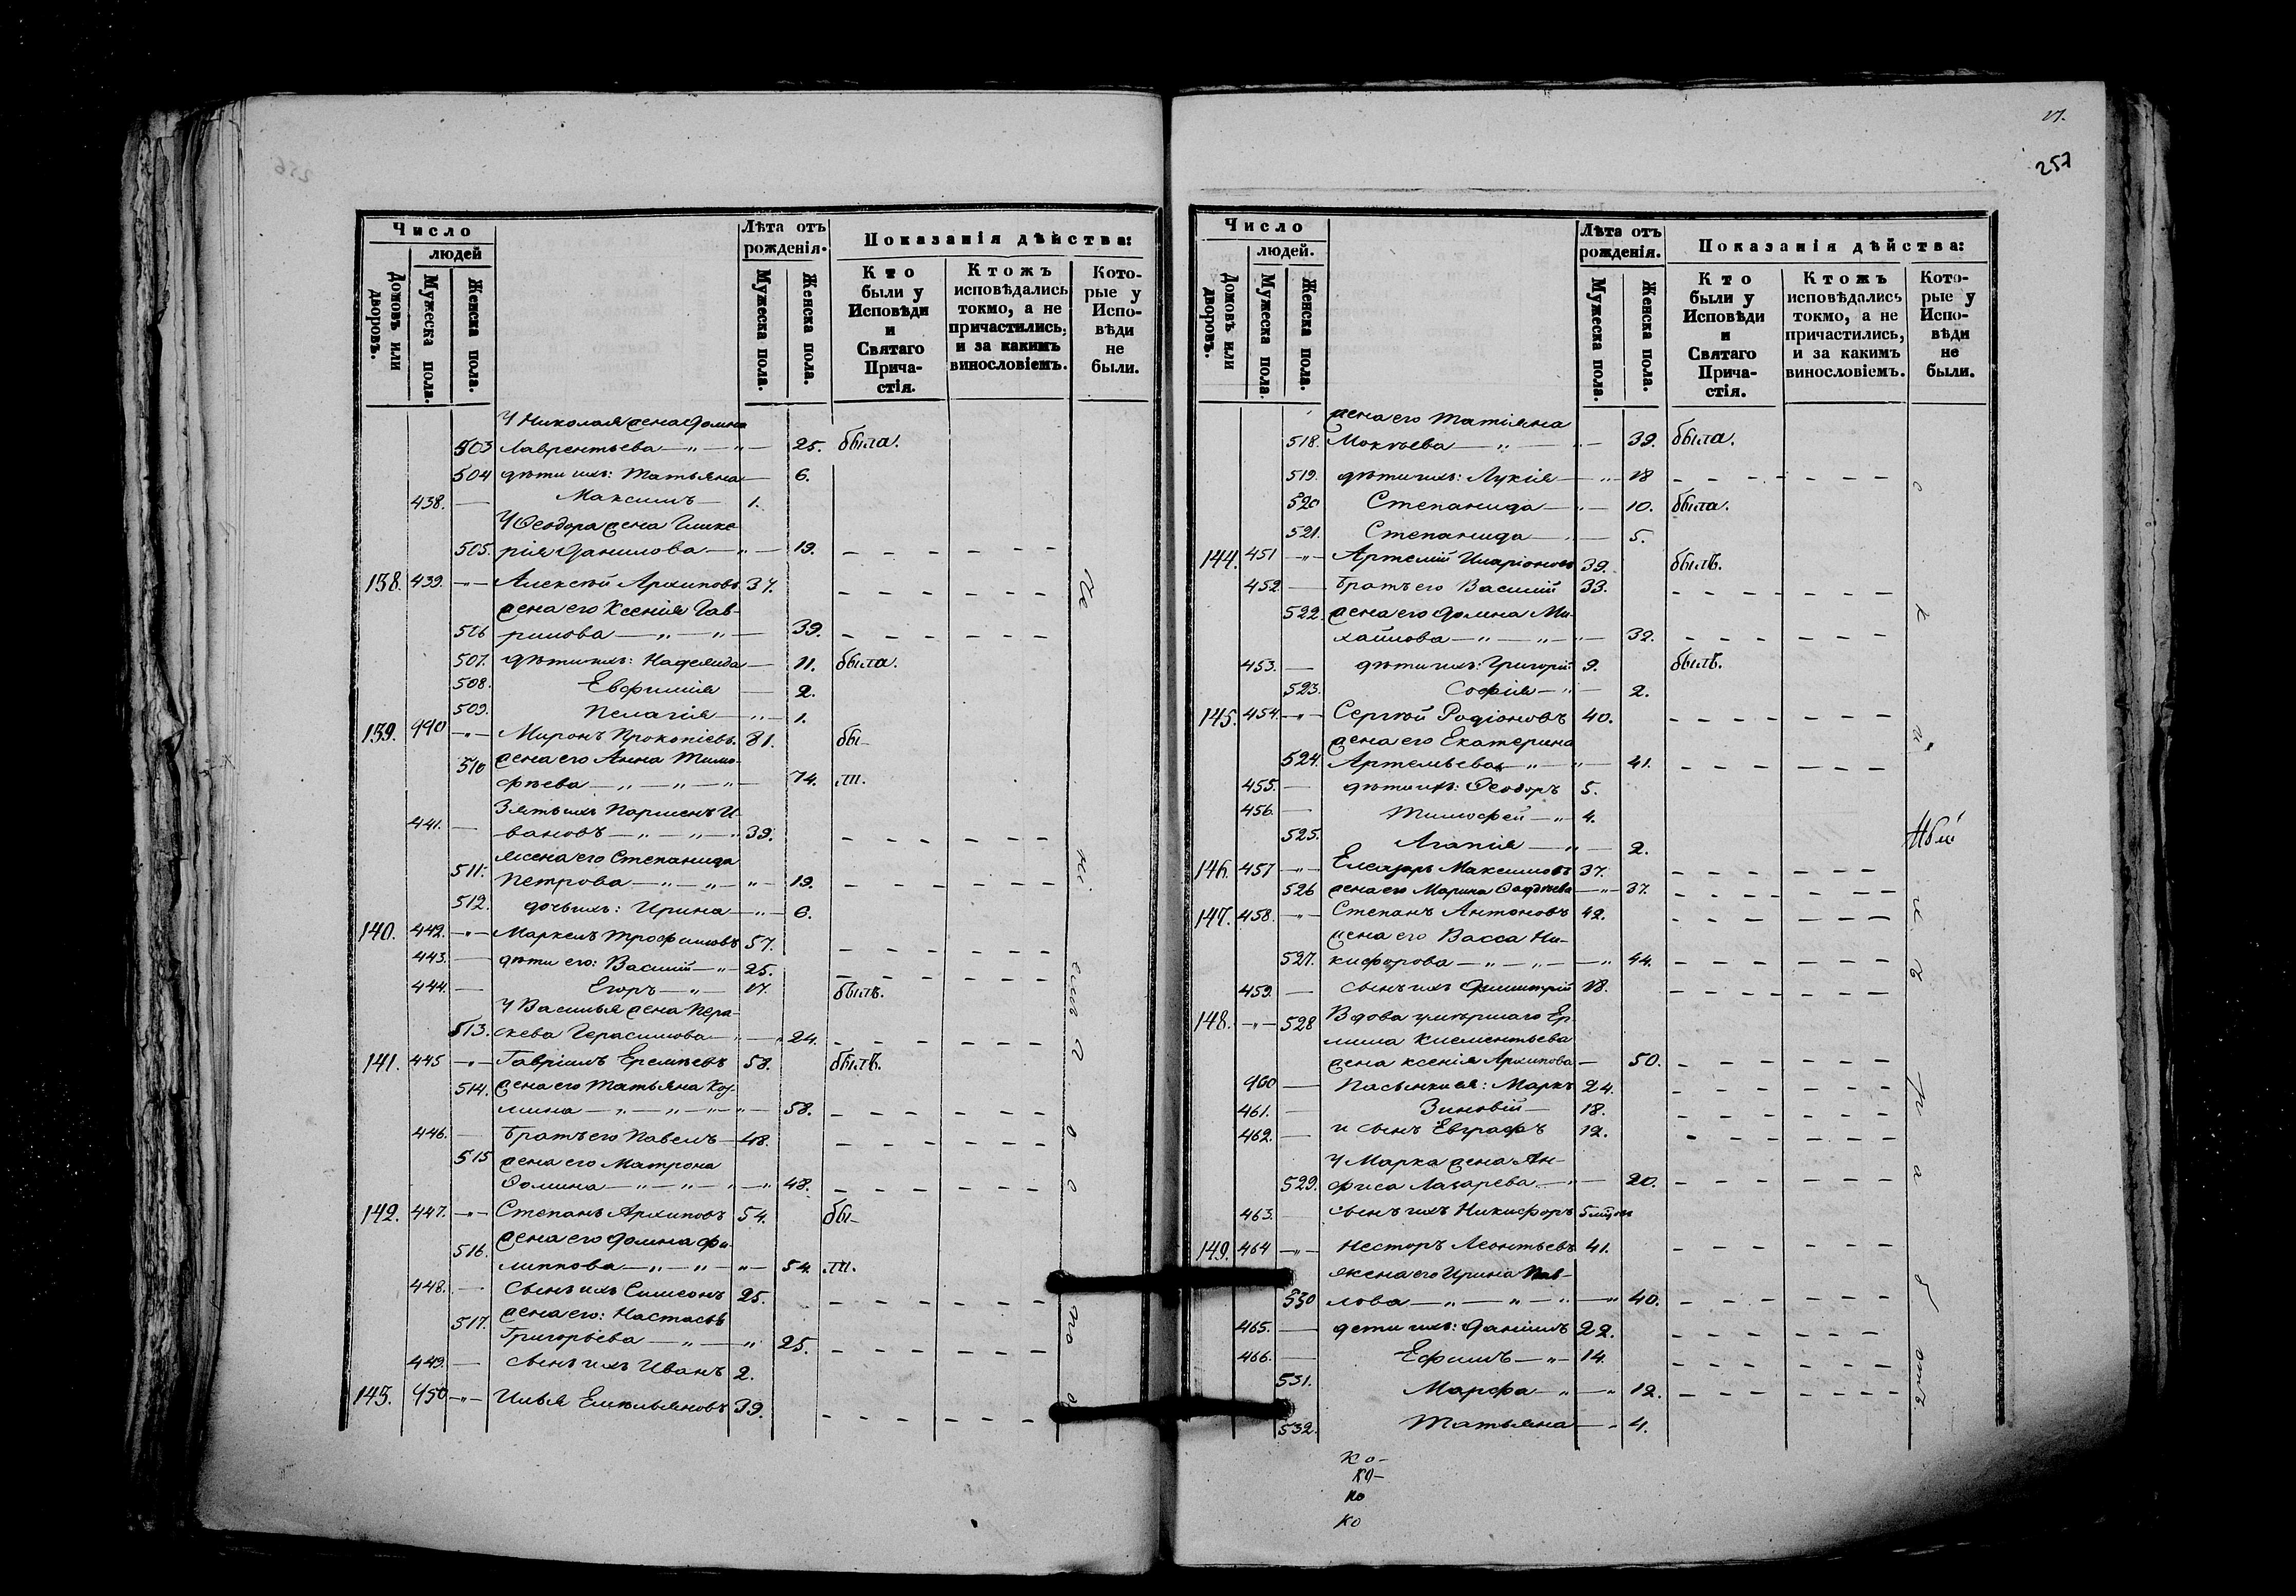 256
Число
людей
Домовъ или дворовъ.
Мужеска пола.
Женска пола.
Лѣта отъ рожденія.
Мужеска пола.
Женска пола.
Показанія дѣйства:
Кто были у Исповѣди и Святаго Причастія.
Ктожъ исповѣдались токмо, а не причастились, и за какимъ винословіемъ.
Которые у Исповѣди не были.
У Николая жена Домна
503 Лаврентьева — „ — „ — 25. была.
504 дѣти ихъ: Татьяна — 6.
438. — Максимъ — 1.
У Ѳеодора жена Глике-
505. рія Данилова — „ — 19. — — — — — —
138. 439. — „ — Алексѣй Архиповъ 37. — — — — — —
жена его Ксенія Гав-
506 рилова — „ — „ — 39. — — — — — —
507. дѣти ихъ: Надежда — 11. была.
508. Евфимія — 2.
509. Пелагія — „ — 1.
139. 440 — „ — Миронъ Прокопіевъ. 81. бы-
510 жена его Анна Тимо-
фѣева — „ — „ — „ — 74. ли.
Зять ихъ Парменъ И-
441. — вановъ — „ — „ — „ 39. — — — — — —
жена его Степанида
511. Петрова — „ — „ — „ — 19. — — — — — —
512. дочь ихъ: Ирина — „ — 6.
140. 442. — „ — Маркелъ Трофимовъ 57. — — — — — —
443. — дѣти его: Василій — „ — 25. — — — — — —
444. — Егоръ — „ — 17. былъ.
У Василья жена Пера-
513. скева Герасимова — „ — „ 24. — — — — — —
141. 445 — „ — Гавріилъ Еремѣевъ 58. былъ.
514. жена его Татьяна Коз-
мина — „ — „ — „ — „ — 58. — — — — — —
446. — Братъ его Павелъ — 48. — — — — — —
515 жена его Матрона
Ѳомина — „ — „ — „ — „ 48. — — — — — —
142. 447. — „ — Степанъ Архиповъ 54. бы-
516. жена его Домна Фи-
липпова — „ — „ — „ — 54 ли.
448. — Сынъ ихъ Симеонъ 25. — — — — — —
517. жена его: Настасья
Григорьева — „ — „ 25. — — — — — —
449. — сынъ ихъ Иванъ 2.
143. 450 — „ — Илья Емельяновъ 39. — — — — — —
17.
257
Число
людей.
Домовъ или дворовъ.
Мужеска пола.
Женска пола.
Лѣта отъ рожденія.
Мужеска пола.
Женска пола.
Показанія дѣйства:
Кто были у Исповѣди и Святаго Причастія.
Ктожъ исповѣдались токмо, а не причастились, и за какимъ винословіемъ.
Которые у Исповѣди не были.
жена его Татіяна
518. Мокѣева — „ — 39. была.
519. дѣти ихъ: Лукія — „ — 18 — — — — — — —
520 Степанида — „ — 10. была.
521. Степанида — „ — 5.
144. 451 — „ — Артемій Иларіоновъ 39. былъ.
452 — Братъ его Василій 33. — — — — — —
522. жена его Домна Ми-
хайлова — „ — „ — „ — 32. — — — — — —
453. — дѣти ихъ: Григорій 9. былъ.
523. Софія — „ — 2.
145. 454. — „ — Сергѣй Родіоновъ 40. — — — — — —
жена его Екатерина
524. Артемьева — „ — „ — 41. — — — — — —
455. — дѣти ихъ: Ѳеодоръ 5.
456. — Тимофей — „ 4.
525. Агапія — „ — 2.
146. 457 — „ — Елеазаръ Максимовъ 37. — — — — — —
526 жена его Марина Ѳаддѣева — „ — 37. — — — — — —
147. 458. — „ — Степанъ Антоновъ 42. — — — — — —
жена его Васса Ни-
527. кифорова — „ — „ — — „ 44. — — — — — —
459. — сынъ ихъ Димитрій 18. — — — — — —
148. — „ — 528 Вдова умершаго Ер-
мила Клементьева
жена Ксенія Архипова — 50. — — — — — —
460 — Пасынки ея: Маркъ 24. — — — — — —
461. — Зиновій — 18. — — — — — —
462. — и сынъ Евграфъ 12. — — — — — —
У Марка жена Ан-
529. фиса Лазарева — „ — 20. — — — — — —
463. сынъ ихъ Никифоръ 5 мѣсяц.
149. 464 — „ — Несторъ Леонтьевъ 41. — — — — — —
жена его Ирина Пав-
530 лова — „ — „ — „ — „ 40. — — — — — —
465. — дети ихъ: Даніилъ 22. — — — — — —
466. — Ефимъ — „ — 14. — — — — — —
531. Марфа — „ — „ 12. — — — — — — —
532. Татьяна — „ 4.
ко-
ко-
ко
ко